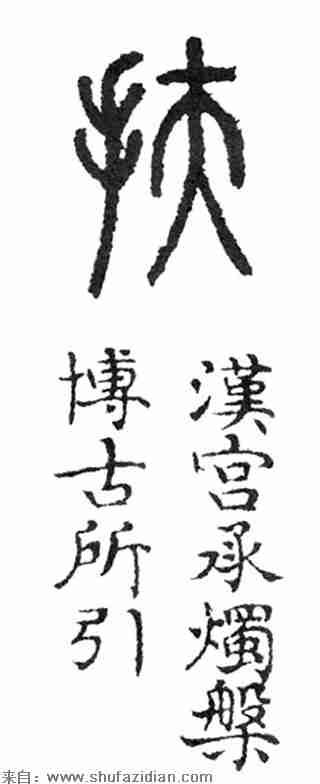 扶
漢宮承燭槃
博古所引
来自：www.shufazidian.com